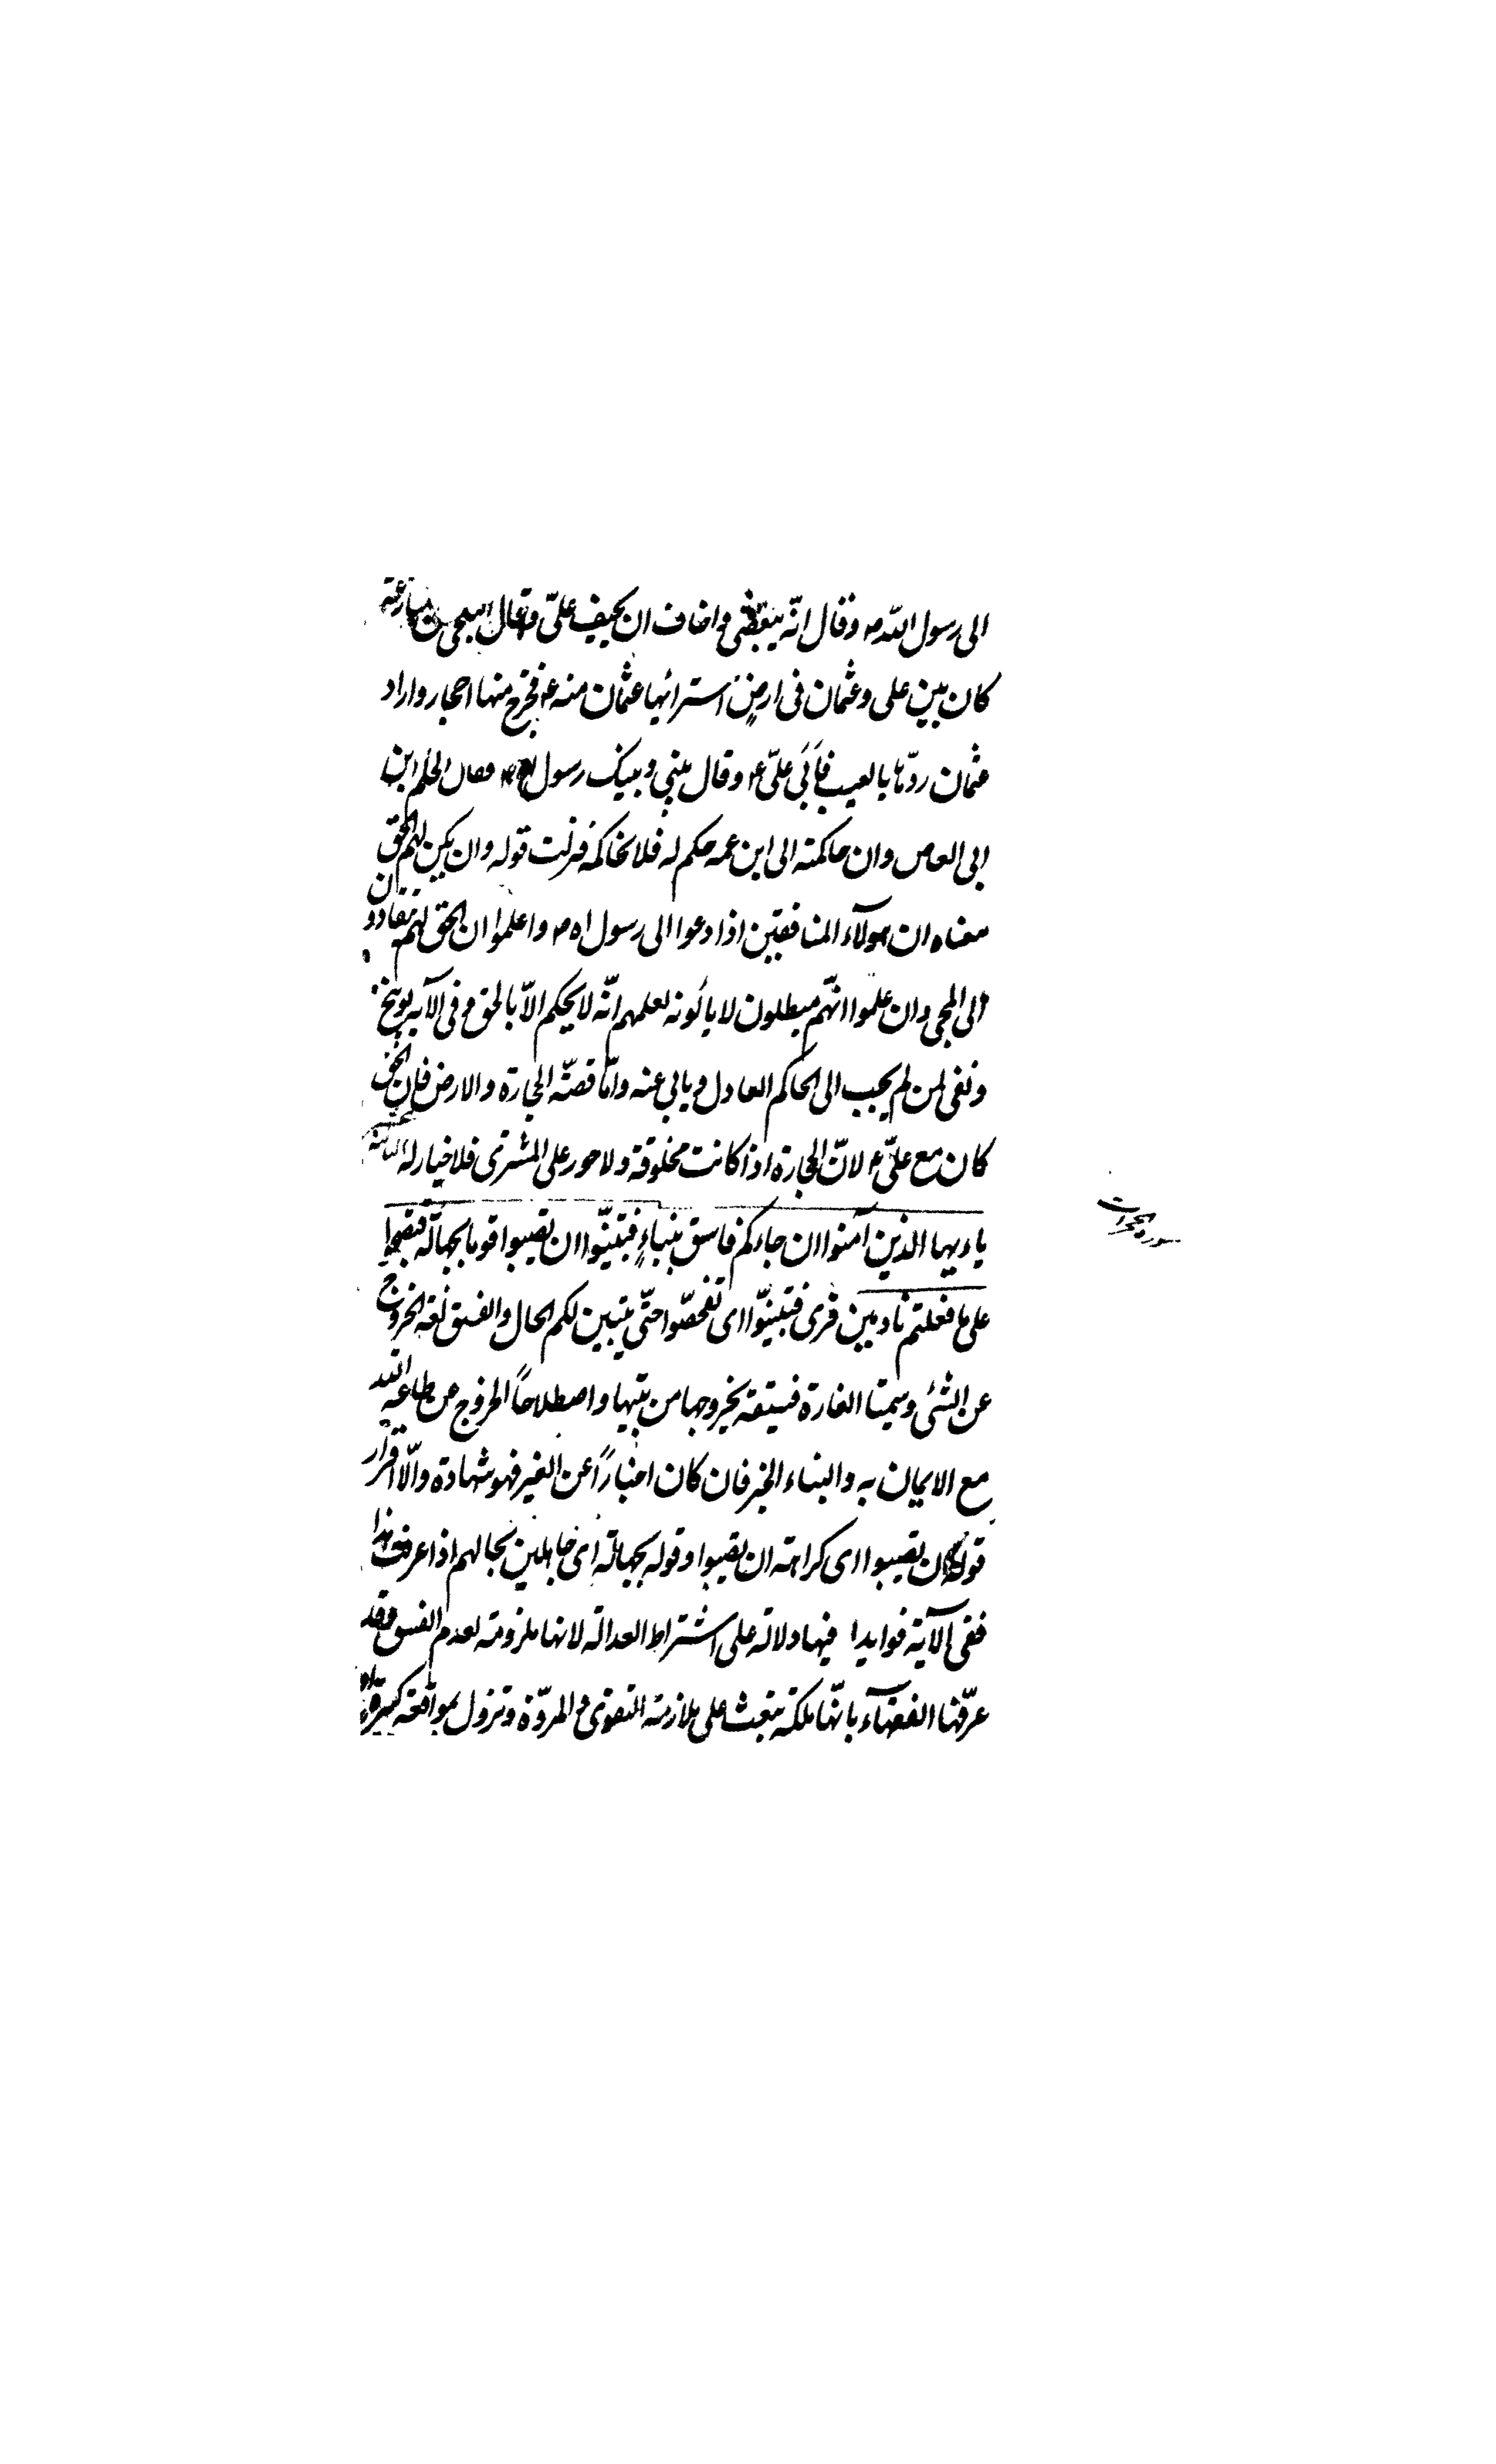 الى رسول الله ص وقال انّه يبغضنى واخاف ان يحيف علىّ وقال البلخى منازعة
كان بين على وعثمان فى ارضٍ استرائها عثمان منه ع فخرج منها احجار واراد
عثمان ردّها بالعيب فأبَى علىّ ع وقال بينى وبينك رسول الله ص فقال الحكم ابن
ابى العاص وان حاكمته الى ابن عمه حكم له فلا تحاكمه فنزلت قوله وان يكن لهم الحق
معناه ان هولآء المنافقين اذا دعوا الى رسول اه ص واعلموا ان الحق لهم ينقادون
الى المجى وان علموا انهّم مبطلون لا يأتونه لعلمهم انّه لا يحكم الاّ بالحق و فى الآيه توبيخ
ونفى لمن لم يجب الى الحاكم العادل و يابى عنه وامّا قصّه الحجارة والارض فان الحق
كان مع علىّ ع لانّ الحجارة اذا كانت مخلوقة ولا حور على المشترى فلا خيار له الثالثة
ياءيها الذين آمنوا ان جاءكم فاسق بنباءٍ فتبيّنوا ان تصيبوا قوما بجهالة فتصبحوا
على ما فعلتم نادمين قرى فتبيّنوا اى تفحصّوا حتّى يتبين لكم الحال والفسق لغة الخروج
عن الشئ وسميتا الفارة فسيقة بخروجها من بيتها واصطلاحاً الخروج عن طاعه الله
مع الايمان به والبناء الخبر فان كان اخباراً عن الغير فهو شهادة والّا اقرار
قوله ان تصيبوا اى كراهته ان تصيبوا وقوله بجهالة اى جاهلين بحالهم اذا عرفت هذا
ففى الآية فوايد ا فيها دلالة على اشتراط العدالة لانها ملزومته لعدم الفسق وقد
عرّفها الفقهآء بانّها ملكته تبعث على ملازمته التقوى و المروّة وتزول بمواقعة كبيرة
سوره حجرات